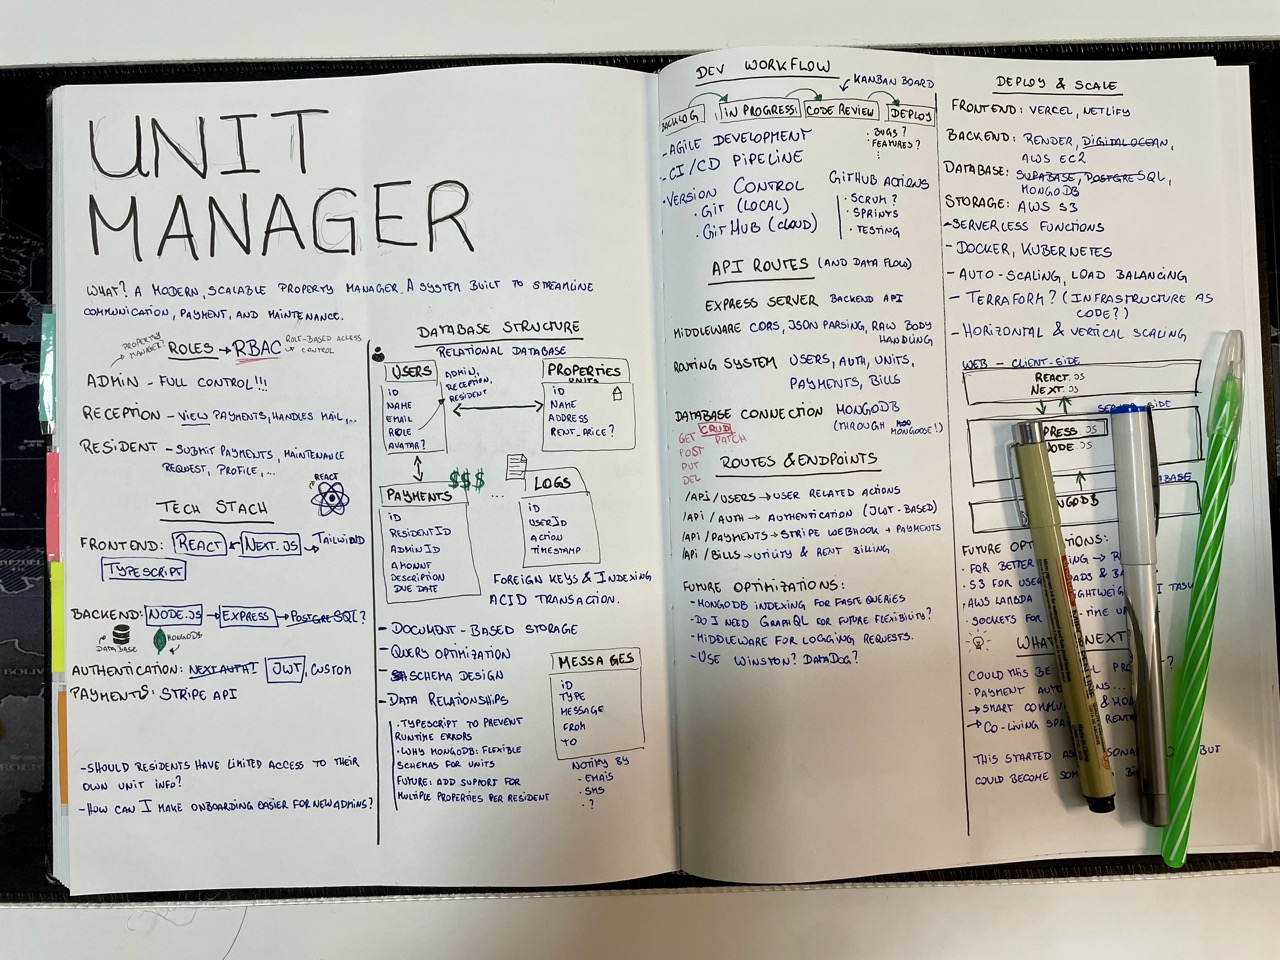 UNIT
MANAGER
WHAT? A MODERN, SCALABLE PROPERTY MANAGER. A SYSTEM BUILT TO STREAMLINE
COMMUNICATION, PAYMENT, AND MAINTENANCE.
PROPERTY
MANAGER?
ROLES → RBAC
ROLE-BASED ACCESS
CONTROL
ADMIN - FULL CONTROL!!!
RECEPTION - VIEW PAYMENTS, HANDLES MAIL,...
RESIDENT - SUBMIT PAYMENTS, MAINTENANCE
REQUEST, PROFILE,...
REACT
TECH STACH
FRONTEND: REACT NEXT.JS → TAILWIND
TYPESCRIPT
BACKEND: NODE.JS → EXPRESS → POSTGRESQL?
DATABASE
MONGODB
AUTHENTICATION: NEXTAUTH? JWT, CUSTOM
PAYMENTS: STRIPE API
- SHOULD RESIDENTS HAVE LIMITED ACCESS TO THEIR
OWN UNIT INFO?
- HOW CAN I MAKE ONBOARDING EASIER FOR NEW ADMINS?
DATABASE STRUCTURE
RELATIONAL DATABASE
USERS
ID
NAME
EMAIL
ROLE
AVATAR?
ADMIN,
RECEPTION,
RESIDENT
PROPERTIES
UNITS
ID
NAME
ADDRESS
RENT_PRICE?
$$$
PAYMENTS
ID
RESIDENTID
ADMINID
AMOUNT
DESCRIPTION
DUE DATE
...
LOGS
ID
USERID
ACTION
TIMESTAMP
FOREIGN KEYS & INDEXING
ACID TRANSACTION.
- DOCUMENT-BASED STORAGE
- QUERY OPTIMIZATION
- SCHEMA DESIGN
- DATA RELATIONSHIPS
· TYPESCRIPT TO PREVENT
RUNTIME ERRORS
· WHY MONGODB: FLEXIBLE
SCHEMAS FOR UNITS
FUTURE: ADD SUPPORT FOR
MULTIPLE PROPERTIES PER RESIDENT
MESSAGES
ID
TYPE
MESSAGE
FROM
TO
NOTIFY BY
· EMAIS
· SMS
· ?
DEV WORKFLOW
KANBAN BOARD
BACKLOG IN PROGRESS CODE REVIEW DEPLOY
· BUGS?
· FEATURES?
- AGILE DEVELOPMENT
- CI/CD PIPELINE
· VERSION CONTROL
· GIT (LOCAL)
· GITHUB (CLOUD)
GITHUB ACTIONS
· SCRUM?
· SPRINTS
· TESTING
API ROUTES (AND DATA FLOW)
EXPRESS SERVER BACKEND API
MIDDLEWARE CORS, JSON PARSING, RAW BODY
HANDLING
ROUTING SYSTEM USERS, AUTH, UNITS,
PAYMENTS, BILLS
DATABASE CONNECTION MONGODB
(THROUGH MONGOOSE!)
CRUD
GET PATCH
POST
PUT
DEL
ROUTES & ENDPOINTS
/API/USERS → USER RELATED ACTIONS
/API/AUTH → AUTHENTICATION (JWT-BASED)
/API/PAYMENTS → STRIPE WEBHOOK + PAYMENTS
/API/BILLS → UTILITY & RENT BILLING
FUTURE OPTIMIZATIONS:
- MONGODB INDEXING FOR FASTE QUERIES
- DO I NEED GRAPHQL FOR FUTURE FLEXIBILITY?
- MIDDLEWARE FOR LOGGING REQUESTS.
- USE WINSTON? DATADOG?
DEPLOY & SCALE
FRONTEND: VERCEL, NETLIFY
BACKEND: RENDER, DIGITALOCEAN,
AWS EC2
DATABASE: SUPABASE, POSTGRESQL,
MONGODB
STORAGE: AWS S3
- SERVERLESS FUNCTIONS
- DOCKER, KUBERNETES
- AUTO-SCALING, LOAD BALANCING
- TERRAFORM? (INFRASTRUCTURE AS
CODE?)
- HORIZONTAL & VERTICAL SCALING
WEB - CLIENT-SIDE
REACT.JS
NEXT.JS
PRESS.JS
FUTURE
· FOR BETTER
· S3 FOR USER
· AWS LAMBDA
· SOCKETS FOR
NEXT
COULD THIS BE
· PAYMENT
→ SMART
→ CO-LIVING
THIS STARTED BUT
COULD BECOME